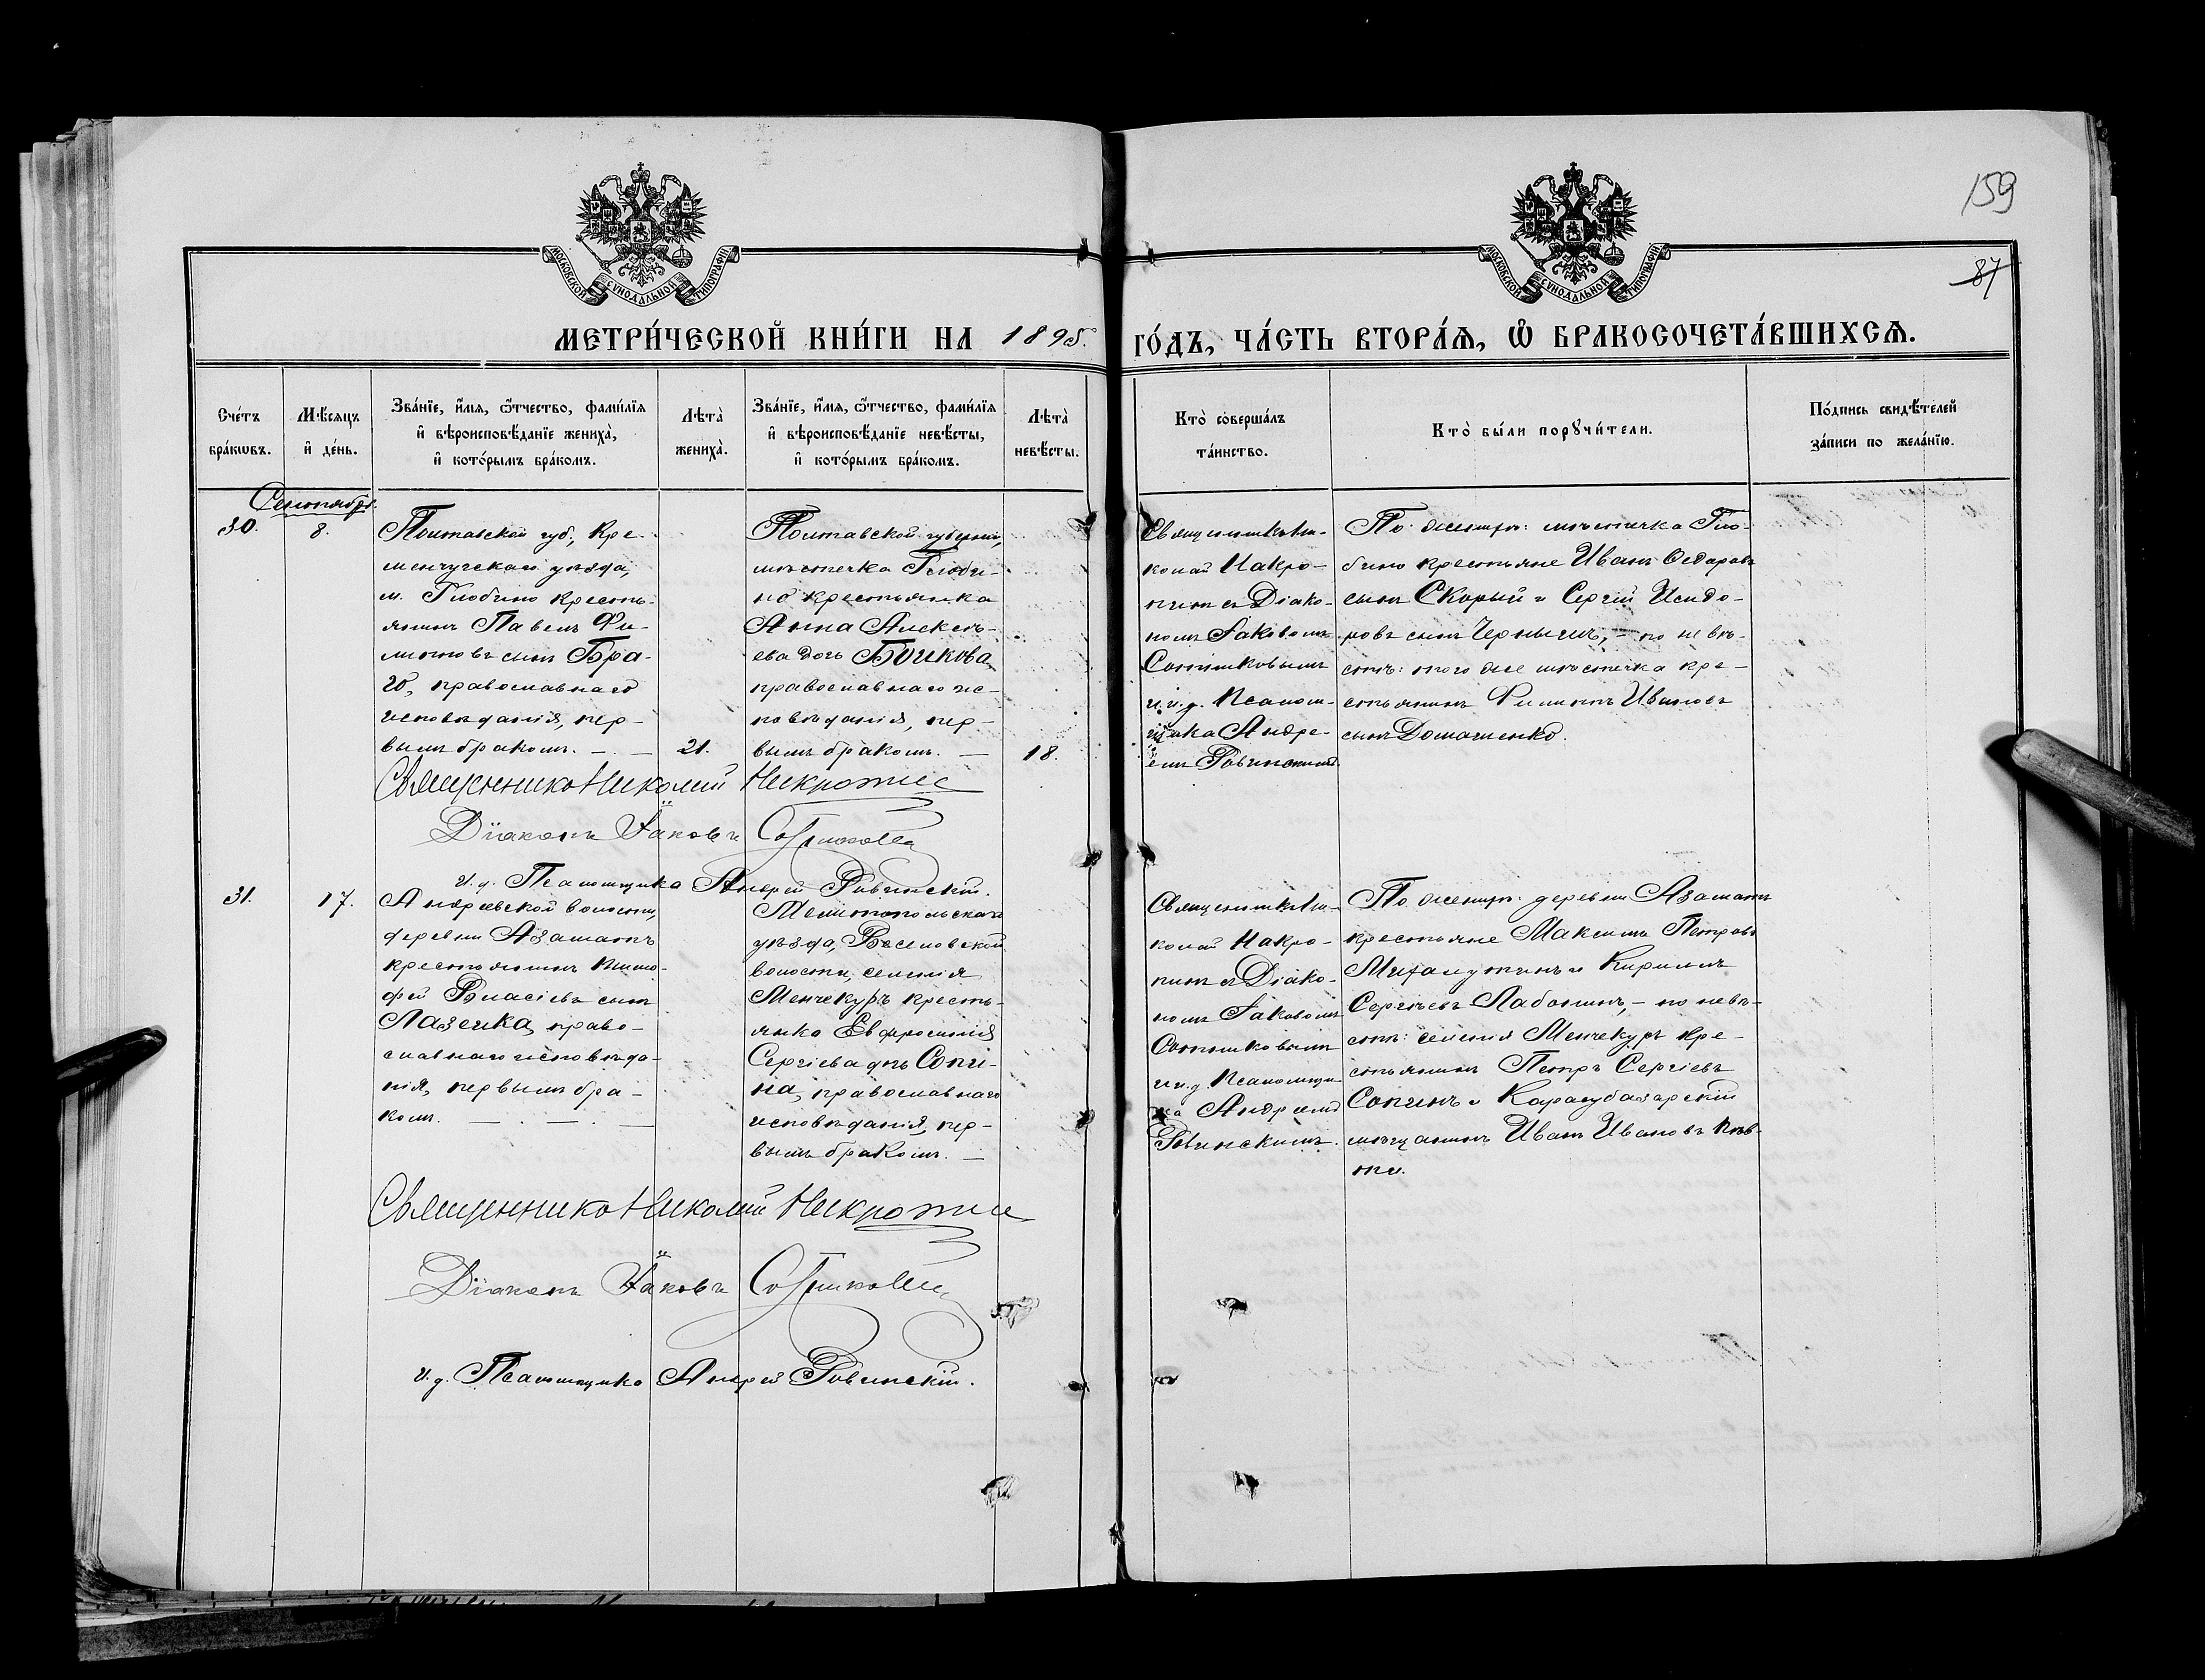 159
87
МОСКОВСКОЙ СѴНОДАЛЬНОЙ ТИПОГРАФІИ
МОСКОВСКОЙ СѴНОДАЛЬНОЙ ТИПОГРАФІИ
МЕТРИ́ЧЕСКОЙ КНИ́ГИ НА 1895.
ГО́ДЪ, ЧА́СТЬ ВТОРА́Ѧ, Ѿ БРАКОСОЧЕТА́ВШИХСѦ.
Сче́тъ
бра́кѡвъ.
Мѣ́сяцъ
и҆ де́нь.
Зва́нїе, и҆́мѧ, ѻ҆́тчество, фами́лїѧ
и҆ вѣроисповѣ́данїе жениха̀,
и҆ кото́рымъ бра́комъ.
Лѣта̀
жениха̀.
Зва́нїе, и҆́мѧ, ѻ҆́тчество, фами́лїѧ
и҆ вѣроисповѣ́данїе невѣ́сты,
и҆ кото́рымъ бра́комъ.
Лѣта̀
невѣ́сты.
Кто̀ соверша́лъ
та́инство.
Кто̀ бы́ли порꙋчи́тели.
По́дпись свидѣ́телей
за́писи по жела́нїю.
Сентябрь.
30.
8.
Полтавской губ., Кре-
менчугскаго уѣзда,
м. Глобино кресть-
янинъ Павелъ Фи-
липповъ сынъ Бра-
го, православнаго
исповѣданія, пер-
вымъ бракомъ. —
21.
Полтавской губерніи,
мѣстечка Глоби-
но крестьянка
Анна Алексѣ-
ева дочь
православнаго ис-
повѣданія, пер-
вымъ бракомъ. —
18.
Священникъ Ни-
колай
съ Діако-
номъ Іаковомъ
Сотниковымъ
и и. д. Псаломщ-
ика Андре-
емъ Ровинскимъ.
По жениху: мѣстечка Гло-
бино крестьяне Иванъ Ѳедоровъ
сынъ Скорый и Сергій Исидо-
ровъ сынъ Чернышъ, – по невѣ-
стѣ: того же мѣстечка кре-
стьянинъ Филиппъ Ивановъ
сынъ Домашенко.
Священникъ Николай
Діаконъ Іаковъ Сотниковъ
И. д. Псаломщика Андрей Ровинскій.
31.
17.
Андреевской волости,
деревни Азаматъ
крестьянинъ Тимо-
фей Власіевъ сынъ
право-
славнаго исповѣда-
нія, первымъ бра-
комъ. — . — . —
Мелитопольскаго
уѣзда,
волости, селенія
Менчекуръ кресть-
янка Евфросинія
Сергіева дчь Сопи-
на, православнаго
исповѣданія, пер-
вымъ бракомъ. —
Священникъ Ни-
колай
съ Діако-
номъ Іаковомъ
Сотниковымъ
и и. д. Псаломщи-
ка Андреемъ
Ровинскимъ.
По жениху: деревни Азаматъ
крестьяне Максимъ Петровъ
и Кириллъ
Сергѣевъ – по невѣ-
стѣ: селенія Менчекуръ кре-
стьянинъ Петръ Сергіевъ
Сопинъ и Карасубазарскій
мѣщанинъ Иванъ Ивановъ
Священникъ Николай
Діаконъ Іаковъ Сотниковъ
И. д. Псаломщика Андрей Ровинскій.